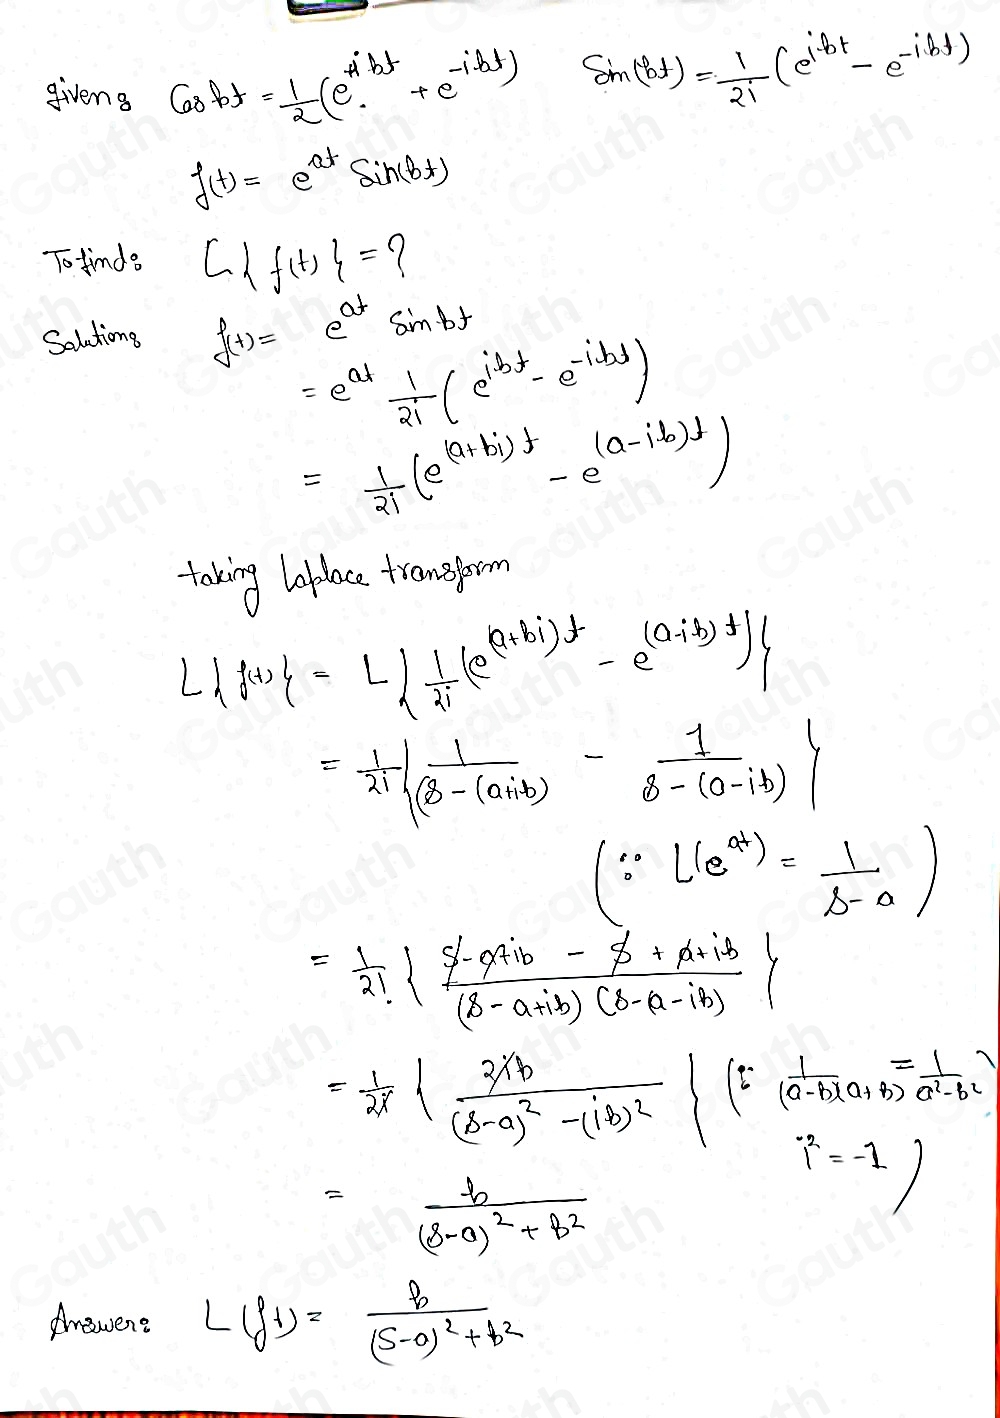 given: Cos bt = 1/2 (e^{+ibt} + e^{-ibt})   Sin(bt) = 1/2i (e^{ibt} - e^{-ibt})
f(t) = e^{at} Sin(bt)
To find: L{f(t)} = ?
Solution: f(t) = e^{at} Sin bt
= e^{at} 1/2i (e^{ibt} - e^{-ibt})
= 1/2i (e^{(a+bi)t} - e^{(a-ib)t})
taking Laplace transform
L{f(t)} = L{1/2i (e^{(a+bi)t} - e^{(a-ib)t})}
= 1/2i {1/(s-(a+ib) - 1/s-(a-ib)}
(∵ L(e^{at}) = 1/s-a)
= 1/2i {s-a+ib - s+a+ib / (s-a+ib)(s-a-ib)}
= 1/2i {2ib / (s-a)^2 - (ib)^2} (∵ 1/(a-b)(a+b) = 1/a^2-b^2
i^2 = -1)
= b / (s-a)^2 + b^2
Answer: L(f t) = b / (s-a)^2 + b^2